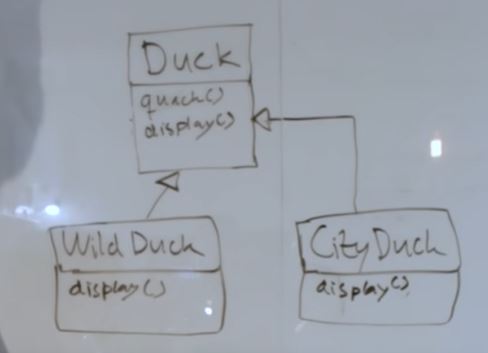 Duck
quack()
display()
Wild Duck
display()
City Duck
display()